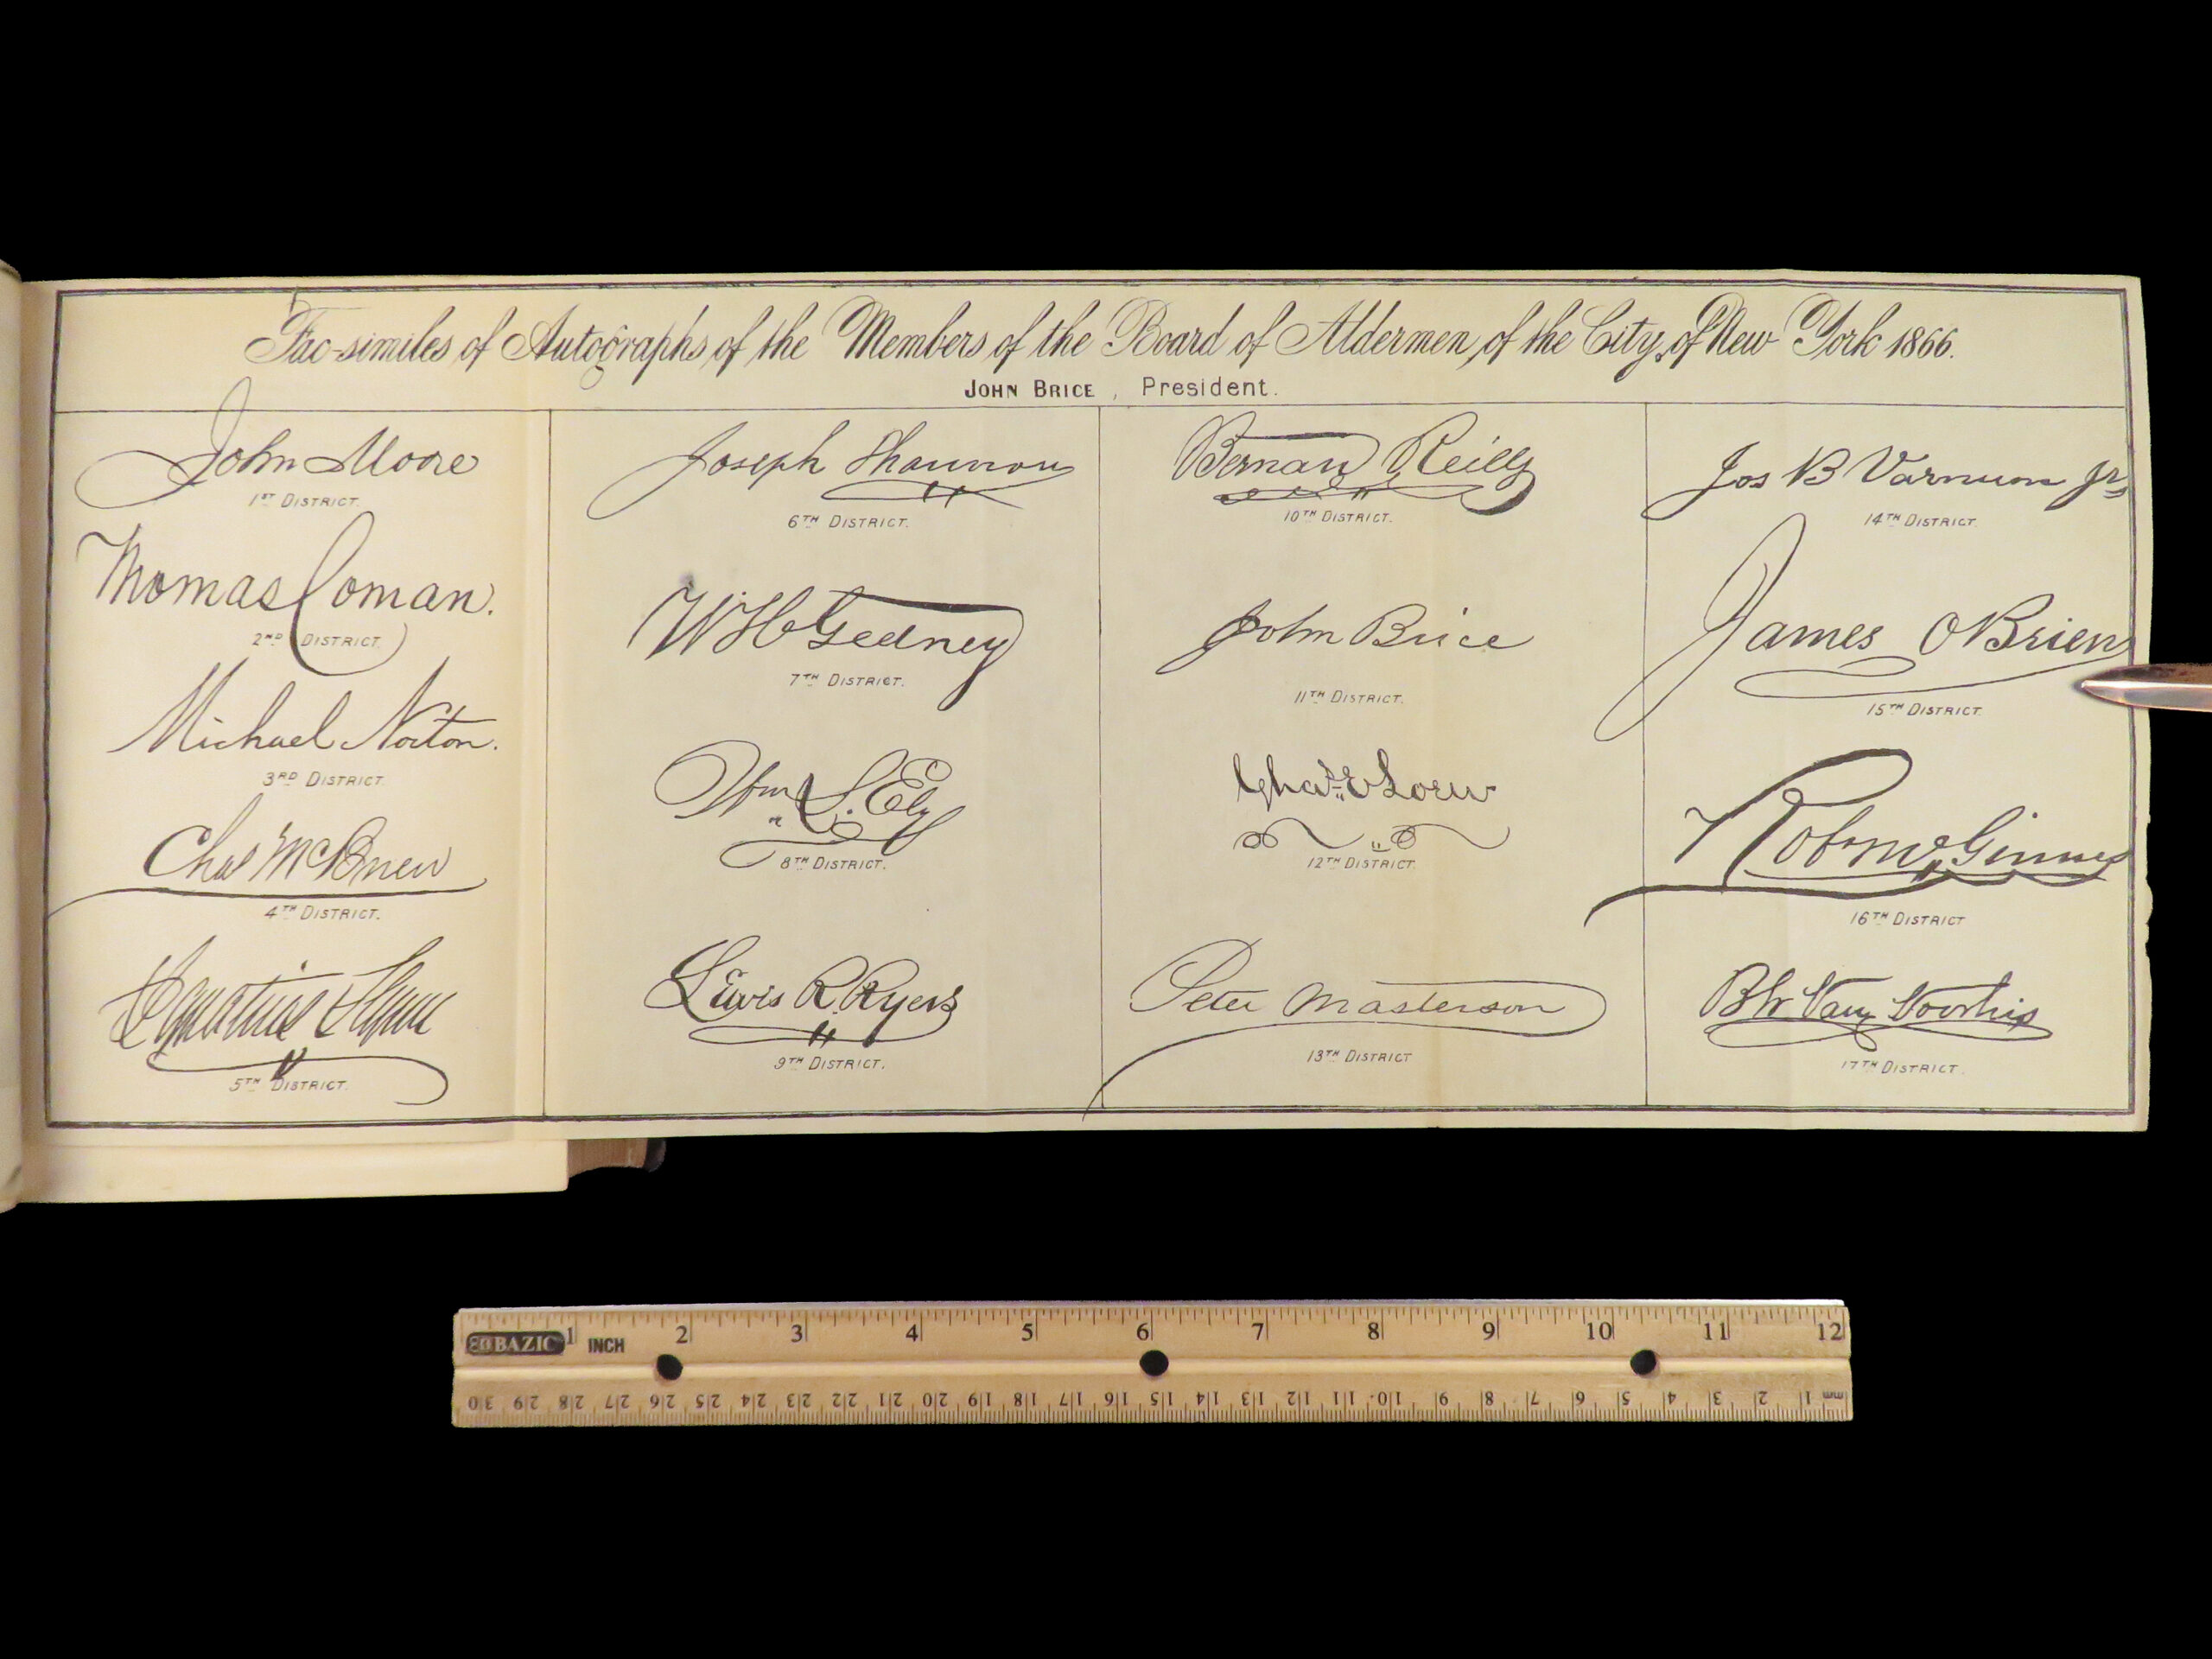 Fac-similes of Autographs of the Members of the Board of Aldermen, of the City, of New York 1866.
JOHN BRICE, President.
John Moore
1ST DISTRICT.
Thomas Coman.
2ND DISTRICT.
Michael Norton.
3RD DISTRICT.
Chas McBrien
4TH DISTRICT.
Ignatius Flynn
5TH DISTRICT.
Joseph Shannon
6TH DISTRICT.
W H Gedney
7TH DISTRICT.
Wm L. Ely
8TH DISTRICT.
Lewis R. Ryers
9TH DISTRICT.
Bernard Reilly
10TH DISTRICT.
John Brice
11TH DISTRICT.
Chas E Loew
12TH DISTRICT.
Peter Masterson
13TH DISTRICT
Jos B Varnum Jr
14TH DISTRICT.
James O'Brien
15TH DISTRICT.
Robt McGinnis
16TH DISTRICT
B W Van Voorhis
17TH DISTRICT.
BAZIC 1 INCH 2 3 4 5 6 7 8 9 10 11 12
30 29 28 27 26 25 24 23 22 21 20 19 18 17 16 15 14 13 12 11 10 9 8 7 6 5 4 3 2 1 mm